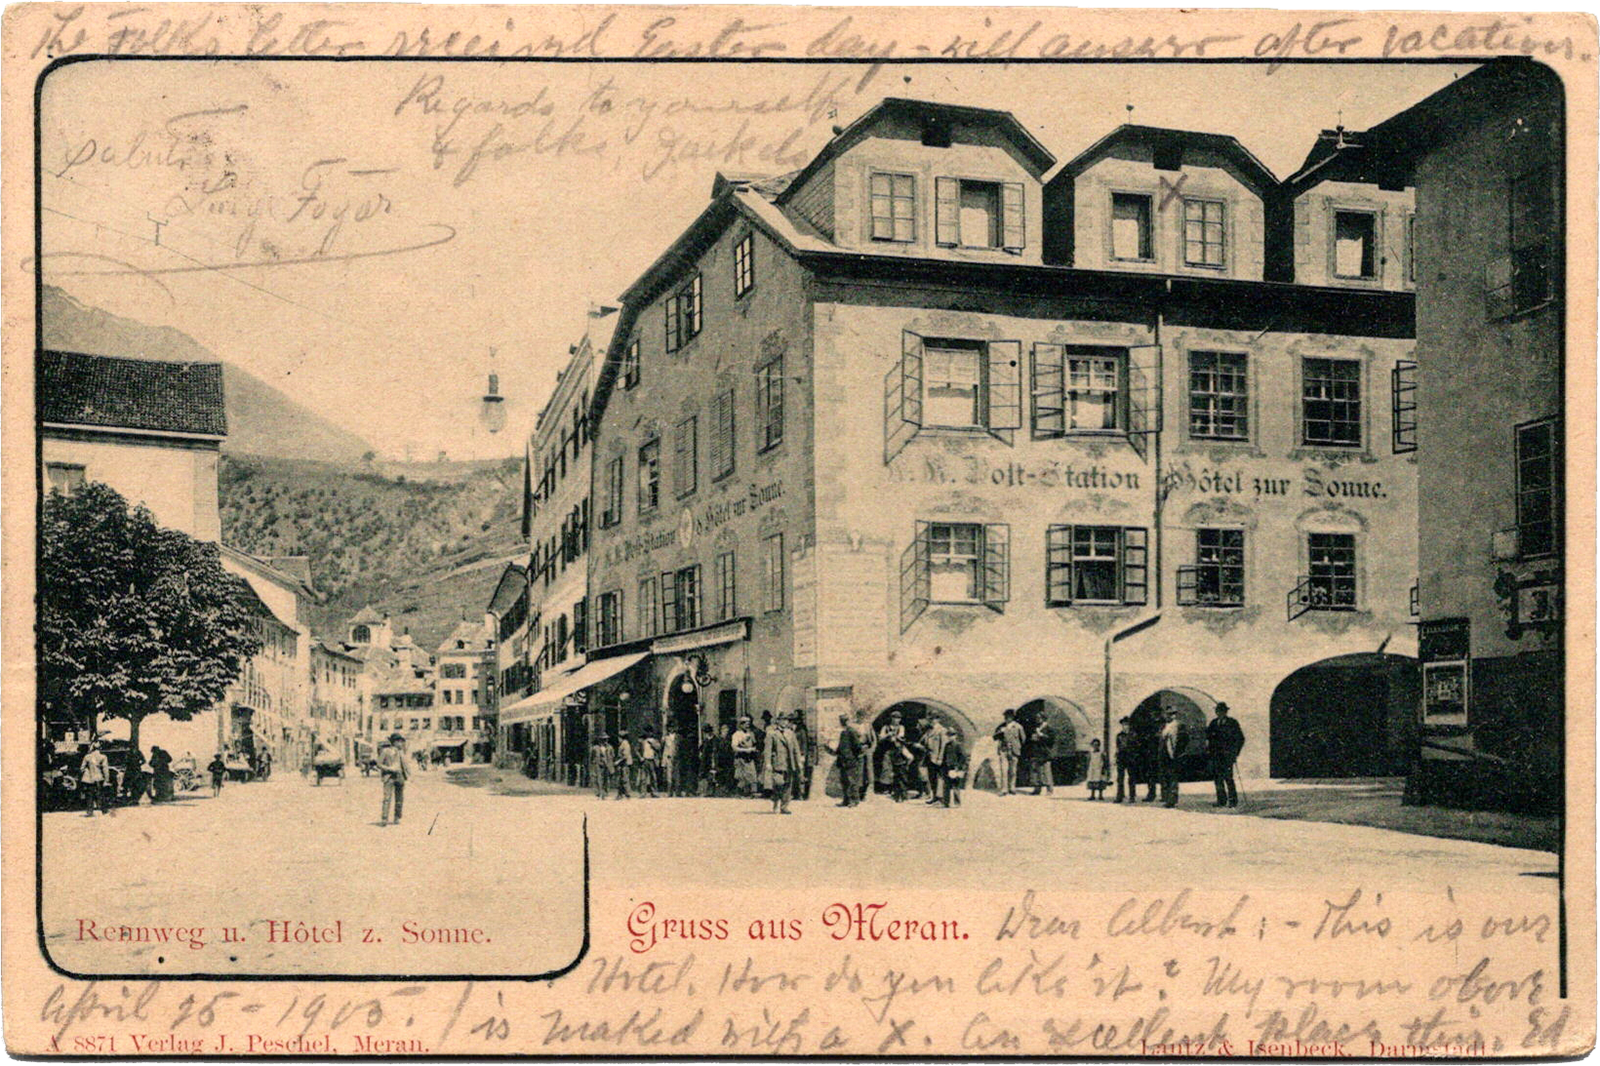 The Folks letter received Easter day - will answer after vacation.
Regards to yourself
& folks,
Saluti
Luigi Fogar
K. K. Post-Station
Hôtel zur Sonne.
K. K. Post-Station
Hôtel zur Sonne.
X
Rennweg u. Hôtel z. Sonne.
Gruss aus Meran.
Dear Albert: - This is our
Hotel. How do you like it? My room above
April 25 - 1905. is marked with a X. An excellent place this. Ed
A 8871 Verlag J. Peschel, Meran.
Lautz & Isenbeck, Darmstadt